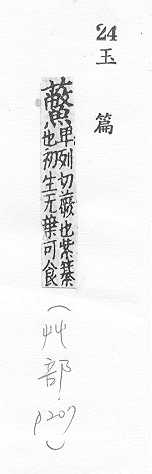 24
玉篇
虌卑列切蕨也紫綦
也初生无葉可食
(艸部.p207)